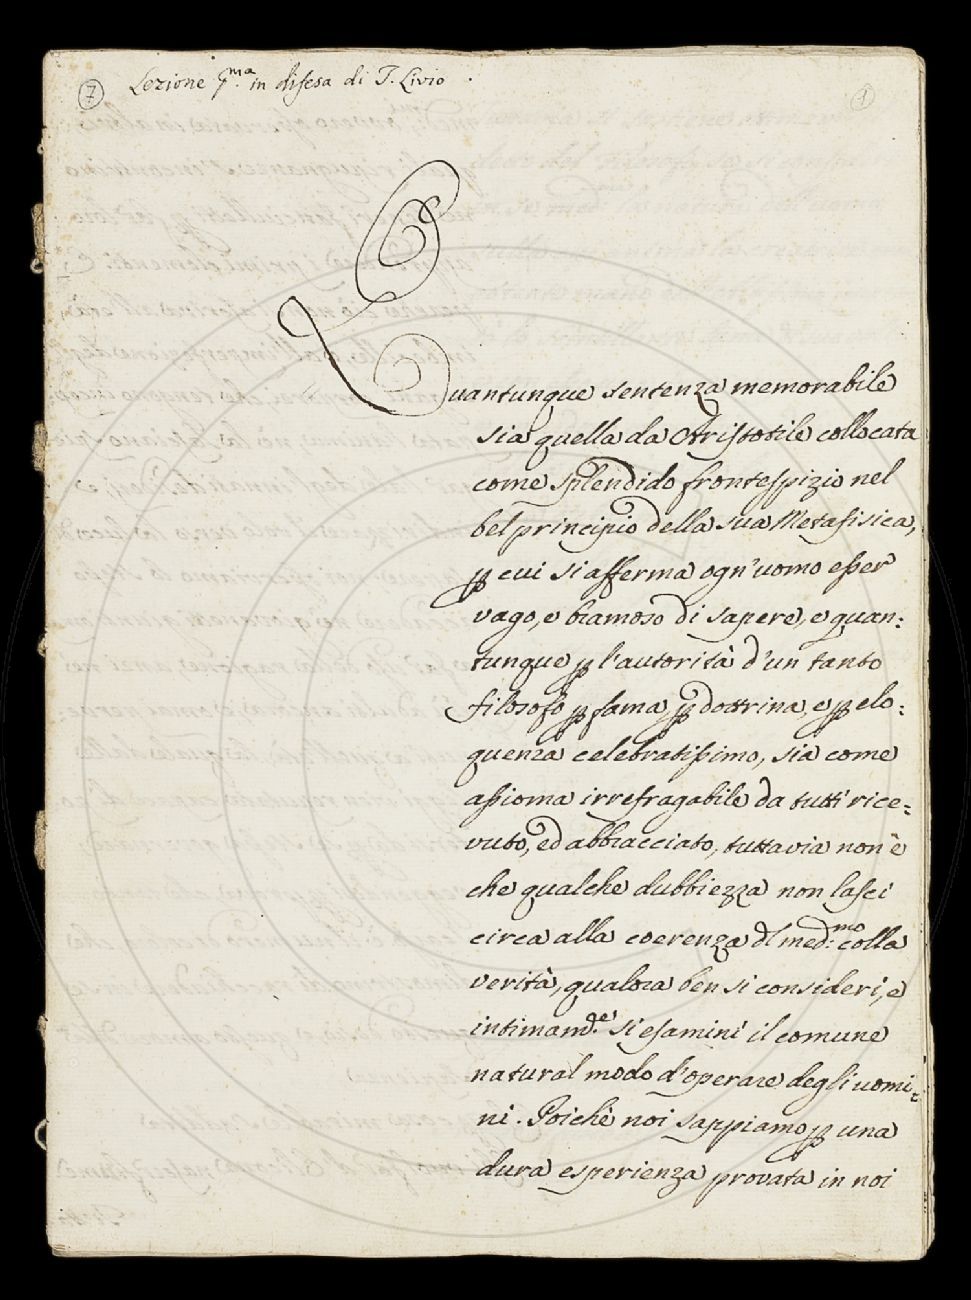 7 Lezione pma. in difesa di T. Livio.
1
Quantunque sentenza memorabile
sia quella da Aristotile collocata
come splendido frontespizio nel
bel principio della sua Metafisica,
p cui si afferma ogn'uomo esser
vago, e bramoso di sapere, e quan:
tunque p l'autorità d'un tanto
filosofo p fama, p dottrina, e p elo:
quenza celebratissimo, sia come
assioma irrefragabile da tutti rice:
vuto, ed abbracciato, tuttavia non è
che qualche dubbiezza non lasci
circa alla coerenza dl med:mo colla
verità, qualora ben si consideri, e
intimamd.e si esamini il comune
natural modo d'operare degli uomi:
ni. Poichè noi sappiamo p una
dura esperienza provata in noi